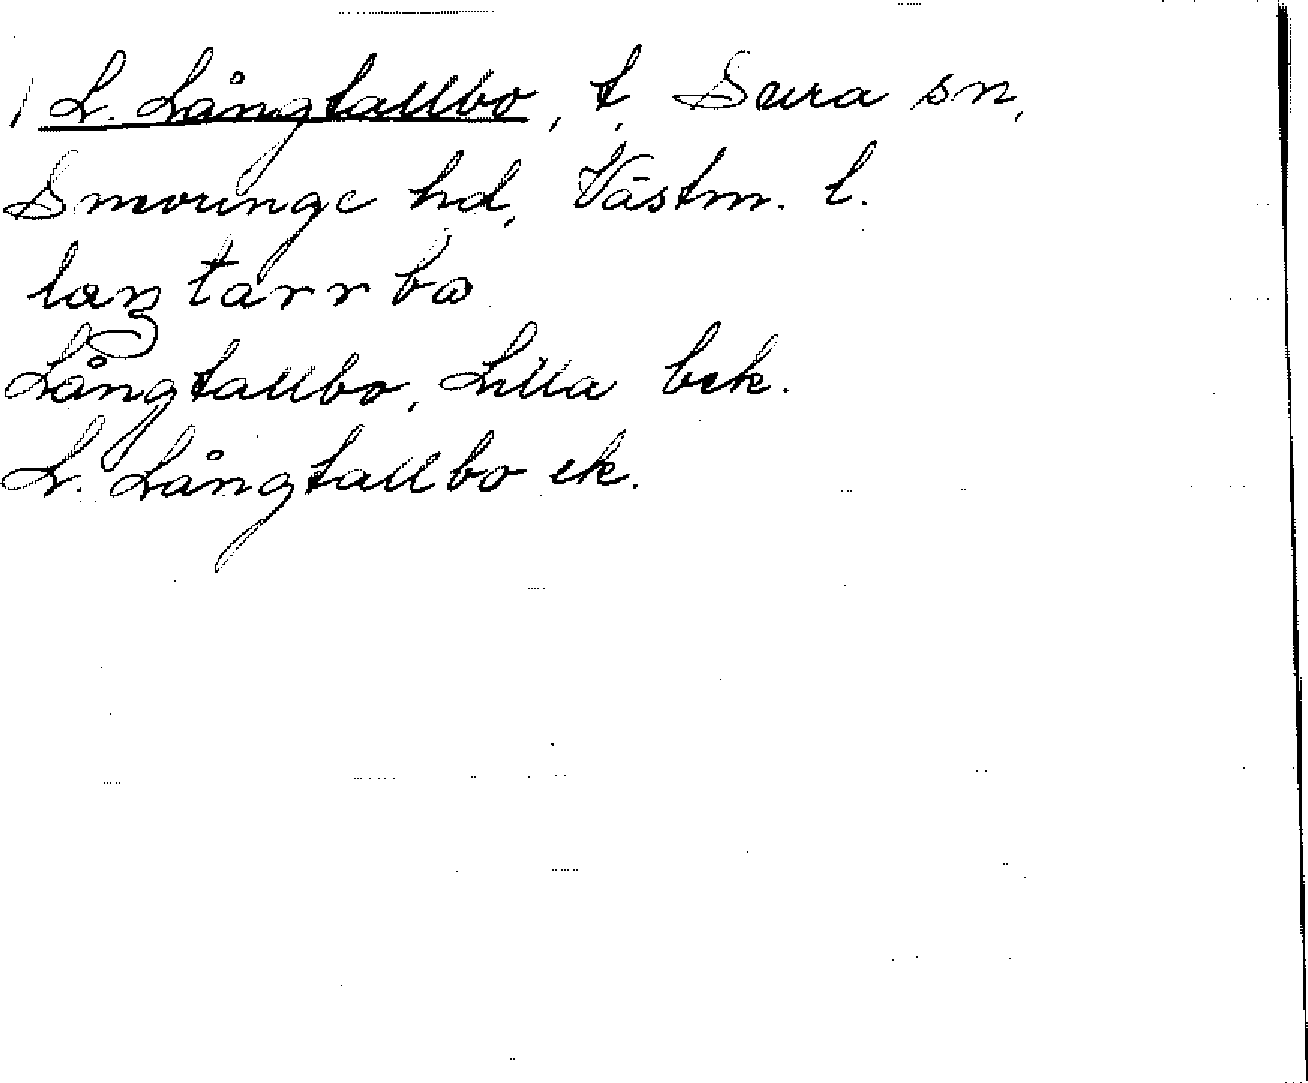 L. Långtallbo, t, Sura sn,
Snevringe hd, Västm. l.
Långtallbo, Lilla bek.
L. Långtallbo ek.